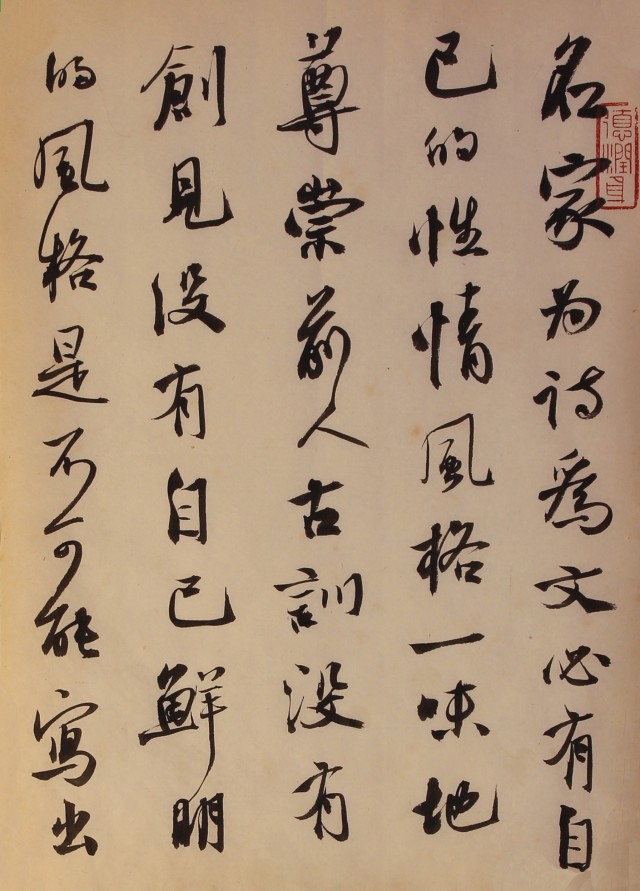 名家为诗為文必有自
己的性情風格一味地
尊崇前人古訓没有
創見没有自己鮮明
的風格是不可能寫出
德潤身